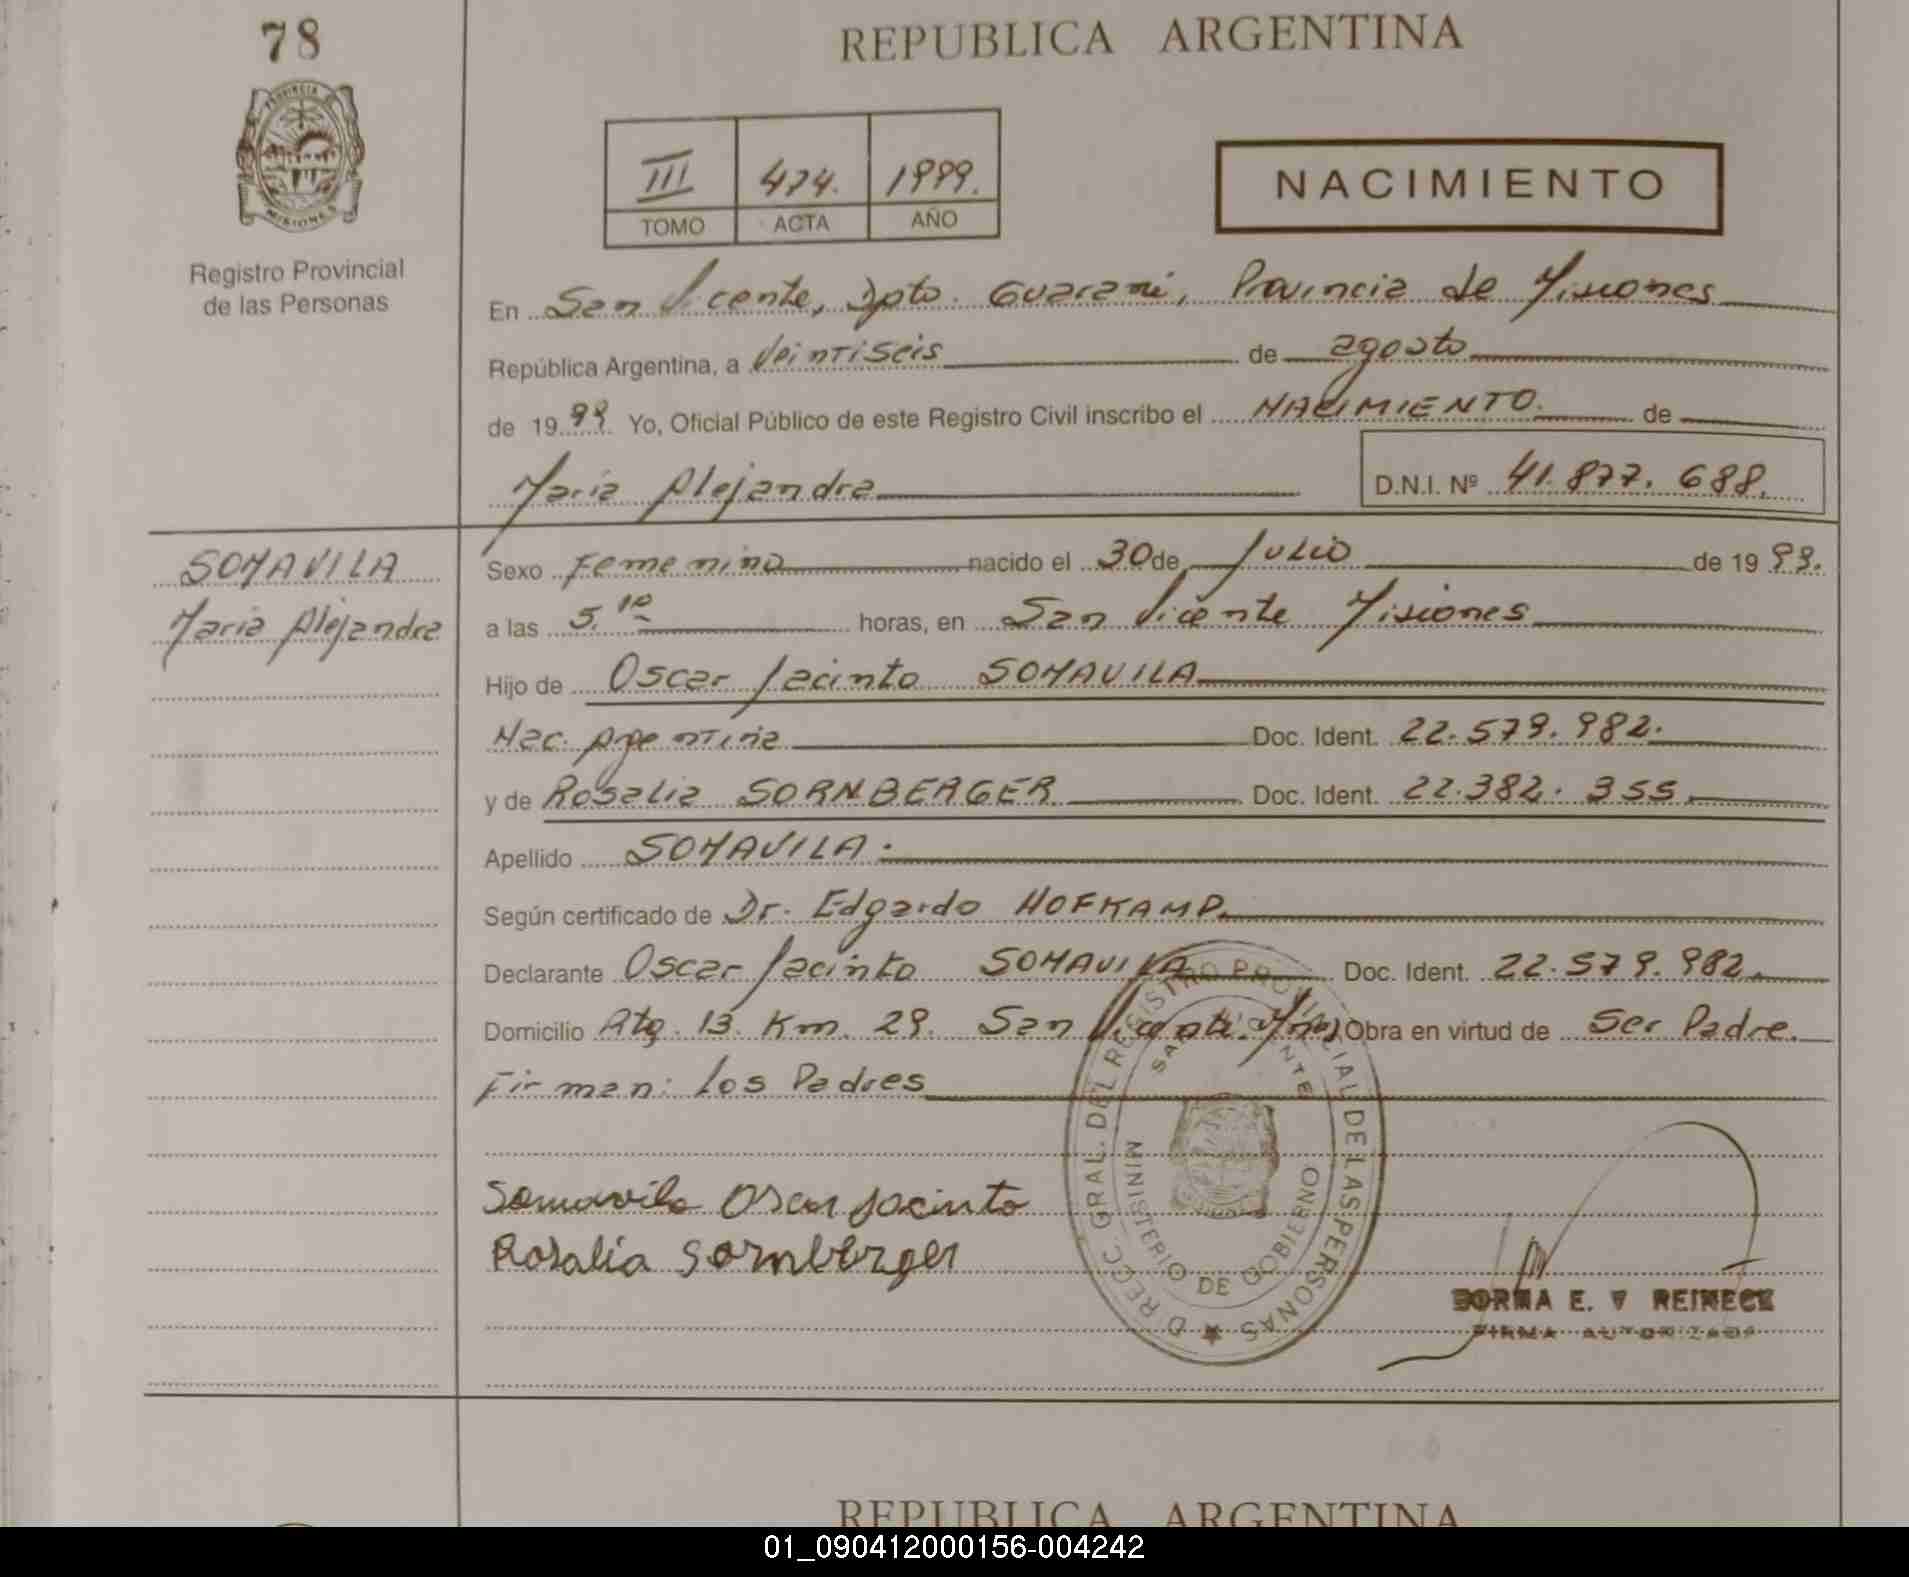 78
REPUBLICA ARGENTINA
PROVINCIA DE
MISIONES
Registro Provincial
de las Personas
III 474. 1999.
TOMO ACTA AÑO
NACIMIENTO
En San Vicente, Dpto. Guaraní, Provincia de Misiones
República Argentina, a Veintiseis de agosto
de 1999 Yo, Oficial Público de este Registro Civil inscribo el NACIMIENTO. de
María Alejandra D.N.I. Nº 41.877.688.
SOMAVILA
María Alejandra
Sexo Femenino nacido el 30 de Julio de 1999.
a las 5.10 horas, en San Vicente Misiones
Hijo de Oscar Jacinto SOMAVILA
Nac. Argentina Doc. Ident. 22.579.982.
y de Rosalia SORNBERGER Doc. Ident. 22.382.355.
Apellido SOMAVILA.
Según certificado de Dr. Edgardo HOFKAMP.
Declarante Oscar Jacinto SOMAVILA Doc. Ident. 22.579.982.
Domicilio Rta. 13. Km. 29. San Vicente. Mnes Obra en virtud de Ser Padre.
Firman: Los Padres
DIRECC. GRAL. DEL REGISTRO PROVINCIAL DE LAS PERSONAS
SAN VICENTE
MINISTERIO DE GOBIERNO
Somavila Oscar Jacinto
Rosalia Sornberger
E. V REINECK
FIRMA AUTORIZADA
REPUBLICA ARGENTINA
01_090412000156-004242